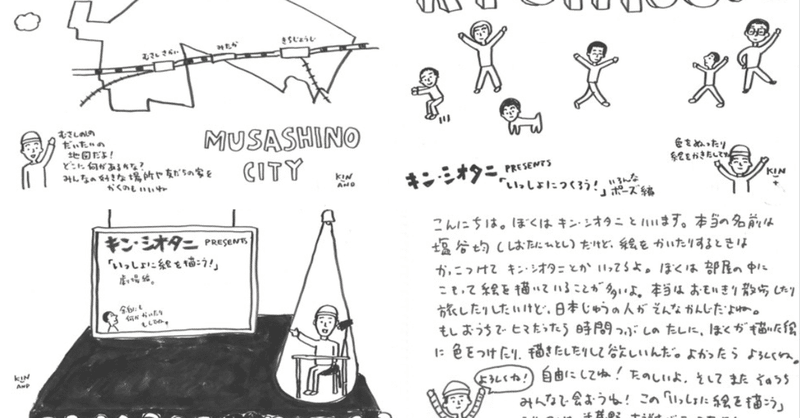 むさしさかい
みたか
きちじょうじ
むさしのしの
だいたいの
地図だよ!
どこに何があるかな?
みんなの好きな場所や友だちの家を
かくのもいいね
MUSASHINO
CITY
KIN
AND
キン・シオタニ PRESENTS
「いっしょに絵を描こう!」
劇場編。
KIN
AND
色をぬったり
絵をかきたしてね
KIN
+
キン・シオタニ PRESENTS
「いっしょにつくろう!」いろんな
ポーズ編
こんにちは。ぼくは キン・シオタニ といいます。本当の名前は
塩谷均(しおたにひとし)だけど、絵をかいたりするときは
かっこつけて キン・シオタニとか いってるよ。ぼくは 部屋の中に
こもって 絵を描いていることが多いよ。本当は おもいきり散歩したり
旅したりしたいけど、日本じゅうの人が そんなかんじだよね。
もし おうちで ヒマだったら 時間つぶしのたしに、ぼくが描いた絵
に 色をつけたり、描きたしたりして欲しいんだ。よかったら よろしくね。
よろしくね!
自由にしてね! たのしいよ。そして また そのうち
みんなで会おうね! この「いっしょに絵を描こう」